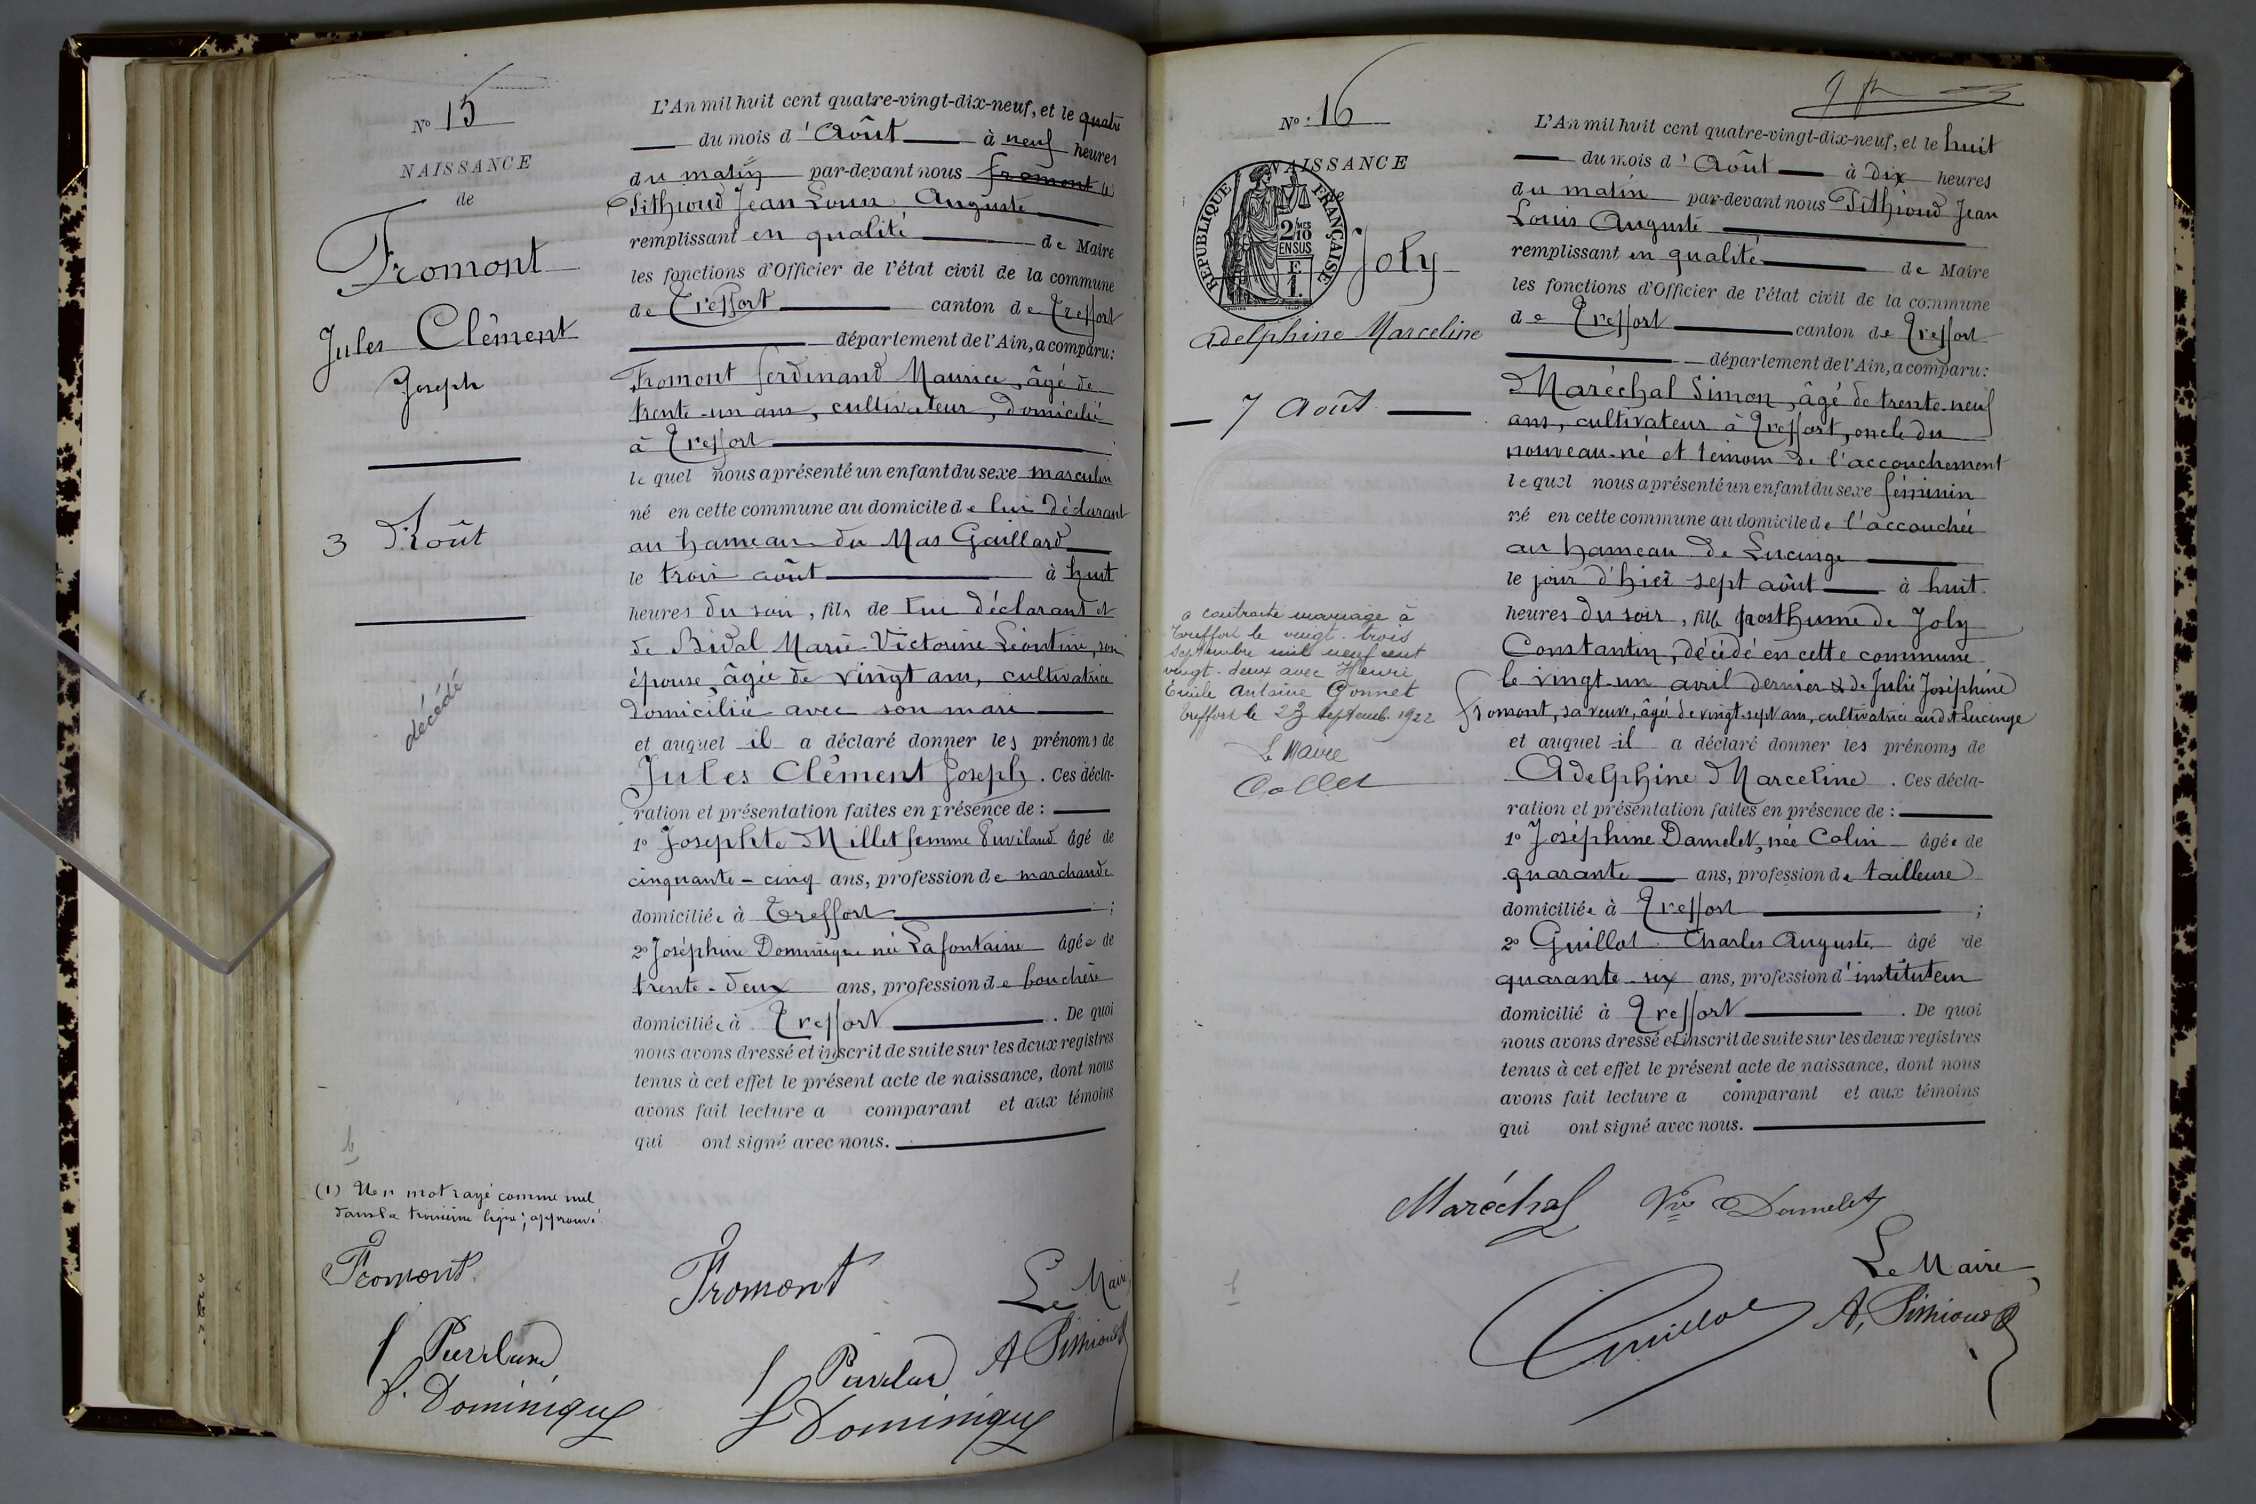 N° 15
NAISSANCE
de
Fromont
Jules Clément
Joseph
3 Août
décédé
L'An mil huit cent quatre-vingt-dix-neuf, et le quatre
du mois d'Août à neuf heures
du matin par-devant nous Fromont (1)
Pithioud Jean Louis Auguste
remplissant en qualité de Maire
les fonctions d'Officier de l'état civil de la commune
de Treffort canton de Treffort
département de l'Ain, a comparu:
Fromont Ferdinand Maurice, âgé de
trente-un ans, cultivateur, domicilié
à Treffort
lequel nous a présenté un enfant du sexe masculin
né en cette commune au domicile de lui déclarant
au hameau du Mas Gaillard
le trois août à huit
heures du soir, fils de lui déclarant et
de Bidal Marie-Victorine Léontine, son
épouse, âgée de vingt ans, cultivatrice
domiciliée avec son mari
et auquel il a déclaré donner les prénoms de
Jules Clément Joseph. Ces décla-
ration et présentation faites en présence de :
1° Josephte Millet femme Puvilland âgé de
cinquante-cinq ans, profession de marchande
domiciliée à Treffort ;
2° Joséphine Dominique née Lafontaine âgée de
trente-deux ans, profession de bouchère
domiciliée à Treffort. De quoi
nous avons dressé et inscrit de suite sur les deux registres
tenus à cet effet le présent acte de naissance, dont nous
avons fait lecture a comparant et aux témoins
qui ont signé avec nous.
(1) Un mot rayé comme nul
dans la troisième ligne; approuvé.
Fromont
Fromont
Le Maire,
A Pithioud
f Puvilland
f. Dominique
f Puvilland
f Dominique
N° 16
NAISSANCE
de
RÉPUBLIQUE FRANÇAISE
2 MES
10
EN SUS
Joly
Adelphine Marceline
7 Août
a contracté mariage à
Treffort le vingt-trois
Septembre mil neuf cent
vingt-deux avec Henri
Emile Antoine Gonnet
Treffort le 23 Septemb. 1922
Le Maire
Collet
L'An mil huit cent quatre-vingt-dix-neuf, et le huit
du mois d'Août à dix heures
du matin par-devant nous Pithioud Jean
Louis Auguste
remplissant en qualité de Maire
les fonctions d'Officier de l'état civil de la commune
de Treffort canton de Treffort
département de l'Ain, a comparu:
Maréchal Simon, âgé de trente-neuf
ans, cultivateur à Treffort, oncle du
nouveau-né et témoin de l'accouchement
lequel nous a présenté un enfant du sexe féminin
né en cette commune au domicile de l'accouchée
au hameau de Lucinge
le jour d'hier sept août à huit
heures du soir, fille posthume de Joly
Constantin, décédé en cette commune
le vingt-un avril dernier & de Julie Joséphine
Fromont, sa veuve, âgée de vingt-sept ans, cultivatrice audit Lucinge
et auquel il a déclaré donner les prénoms de
Adelphine Marceline. Ces décla-
ration et présentation faites en présence de :
1° Joséphine Damelet, née Colin âgée de
quarante ans, profession de tailleuse
domiciliée à Treffort ;
2° Guillot Charles Auguste âgé de
quarante-six ans, profession d'instituteur
domicilié à Treffort. De quoi
nous avons dressé et inscrit de suite sur les deux registres
tenus à cet effet le présent acte de naissance, dont nous
avons fait lecture a comparant et aux témoins
qui ont signé avec nous.
Maréchal
Vve Damelet
Le Maire,
Guillot
A, Pithioud